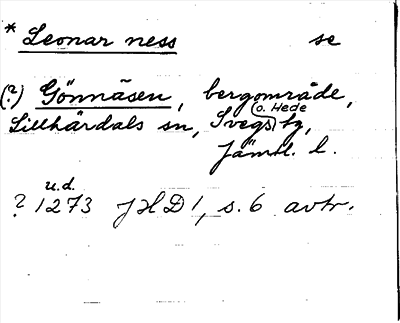 * Leonar ness se
(?) Gönnäsen, bergområde,
o. Hede
Lillhärdals sn, Svegs tg,
Jämtl. l.
u.d.
? 1273 JHD 1, s. 6 avtr.